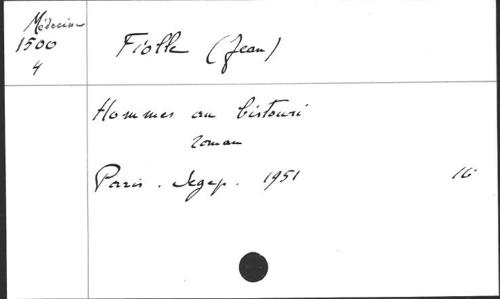 Médecine
1500
4
Fiolle (Jean)
Hommes au bistouri
roman
Paris. Segep. 1951 16